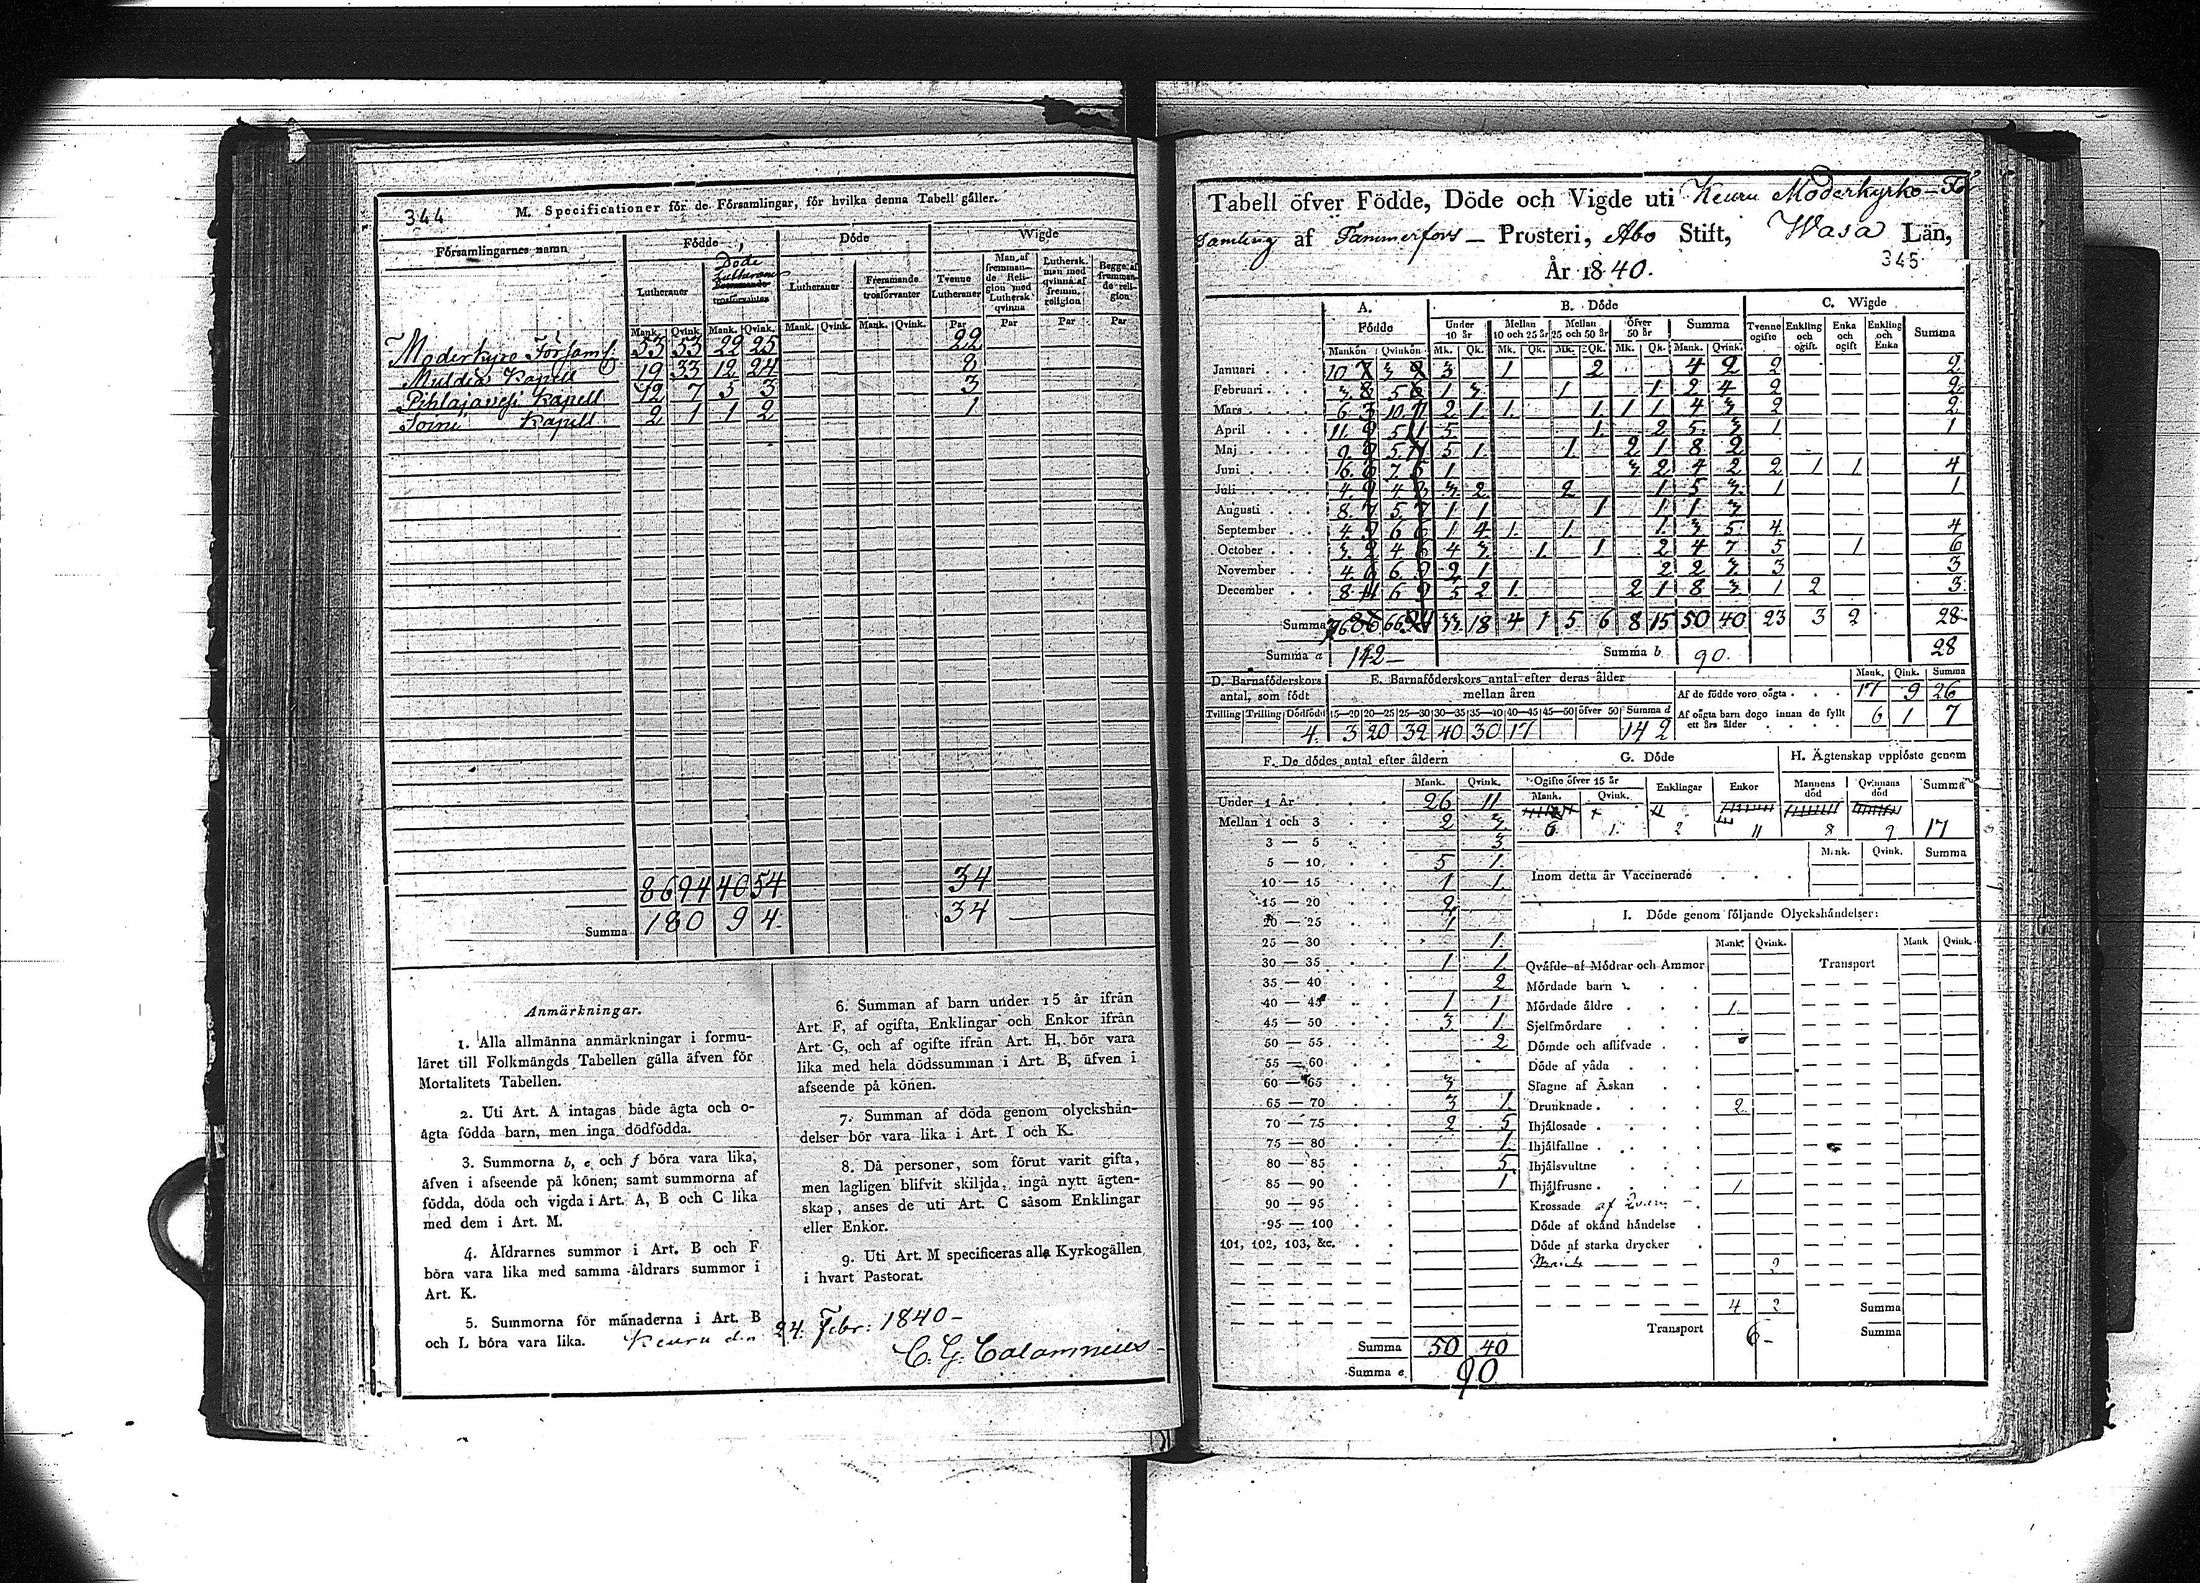 344
M. Specificationer för de Församlingar, för hvilka denna Tabell gäller.
Församlingarnes namn
Födde
Döde
Wigde
Lutheraner
Döde
Lutheraner
Fremmande trosförvanter
Lutheraner
Fremmande trosförvanter
Tvenne Lutheraner
Man af fremmande Religion med Luthersk qvinna
Luthersk man med qvinna af fremm. religion
Begge af fremmande religion
Mank. Qvink. Mank. Qvink. Mank. Qvink. Mank. Qvink. Par Par Par Par
Moderkyro Församl. 53 53 22 25 22
Muldia Kapell 19 33 12 24 8
Pihlajavesi Kapell 12 7 5 3 3
Kapell 2 1 1 2 1
86 94 40 54 34
Summa 180 94. 34
Anmärkningar.
1. Alla allmänna anmärkningar i formu-
läret till Folkmängds Tabellen gälla äfven för
Mortalitets Tabellen.
2. Uti Art. A intagas både ägta och o-
ägta födda barn, men inga dödfödda.
3. Summorna b, e och f böra vara lika,
äfven i afseende på könen; samt summorna af
födda, döda och vigda i Art. A, B och C lika
med dem i Art. M.
4. Åldrarnes summor i Art. B och F
böra vara lika med samma åldrars summor i
Art. K.
5. Summorna för månaderna i Art. B
och L böra vara lika.
6. Summan af barn under 15 år ifrån
Art. F, af ogifta, Enklingar och Enkor ifrån
Art. G, och af ogifte ifrån Art. H, bör vara
lika med hela dödssumman i Art. B, äfven i
afseende på könen.
7. Summan af döda genom olyckshän-
delser bör vara lika i Art. I och K.
8. Då personer, som förut varit gifta,
men lagligen blifvit skiljda, ingå nytt ägten-
skap, anses de uti Art. C såsom Enklingar
eller Enkor.
9. Uti Art. M specificeras alla Kyrkogällen
i hvart Pastorat.
Keuru den 24. Febr: 1840-
C. G. Calamnius
Tabell öfver Födde, Döde och Vigde uti Keuru Moderkyrko-För
samling af Tammerfors - Prosteri, Åbo Stift, Wasa Län,
År 1840.
345
A. Födde
B. Döde
C. Wigde
Under 10 år
Mellan 10 och 25 år
Mellan 25 och 50 år
öfver 50 år
Summa
Tvenne ogifte
Enkling och ogift
Enka och ogift
Enkling och Enka
Summa
Mankön Qvinkön Mk. Qk. Mk. Qk. Mk. Qk. Mk. Qk. Mank. Qvink.
Januari 10 3 3 1 2 4 2 2 2
Februari 3 5 1 3 1 1 2 4 2 2
Mars 6 10 2 1 1 1 1 1 4 3 2 2
April 11 5 5 1 2 5 3 1 1
Maj 9 5 5 1 1 2 1 8 2
Juni 6 7 1 3 2 4 2 2 1 1 4
Juli 4 4 3 2 2 1 5 3 1 1
Augusti 8 5 1 1 1 1 1 3
September 4 6 1 4 1 1 1 3 5 4 4
October 3 4 4 3 1 1 2 4 7 5 1 6
November 4 6 2 1 2 2 3 3 3
December 8 6 5 2 1 2 1 8 3 1 2 3
Summa 76 66 33 18 4 1 5 6 8 15 50 40 23 3 2 28
Summa a 142 Summa b 90. 28
D. Barnaföderskors antal, som födt
E. Barnaföderskors antal efter deras ålder mellan åren
Mank. Qink. Summa
Af de födde voro oägta 17 9 26
Tvilling Trilling Dödfödd 15—20 20—25 25—30 30—35 35—40 40—45 45—50 öfver 50 Summa d
4. 3 20 32 40 30 17 142
Af oägta barn dogo innan de fyllt ett års ålder 6 1 7
F. De dödes antal efter åldern
G. Döde
H. Ägtenskap upplöste genom
Mank. Qvink.
Ogifte öfver 15 år
Mank. Qvink.
Enklingar
Enkor
Mannens död
Qvinnans död
Summa
6 1 2 11 8 9 17
Under 1 År 26 11
Mellan 1 och 3 2 3
3 — 5 3
5 — 10 5 1
10 — 15 1 1
15 — 20 2
20 — 25 1
25 — 30 1
30 — 35 1 1
35 — 40 2
40 — 45 1 1
45 — 50 3 1
50 — 55 2
55 — 60
60 — 65 3
65 — 70 3 1
70 — 75 2 5
75 — 80 1
80 — 85 5
85 — 90 1
90 — 95
95 — 100
101, 102, 103, &c.
Summa 50 40
Summa e. 90
Mank. Qvink. Summa
Inom detta år Vaccinerade
I. Döde genom följande Olyckshändelser:
Mank. Qvink. Mank Qvink.
Qväfde af Mödrar och Ammor
Transport
Mördade barn
Mördade äldre 1
Sjelfmördare
Dömde och aflifvade
Döde af våda
Slagne af Åskan
Drunknade 2
Ihjälosade
Ihjälfallne
Ihjälsvultne
Ihjälfrusne 1
Krossade af
Döde af okänd händelse
Döde af starka drycker
2
4 2 Summa
Transport 6- Summa